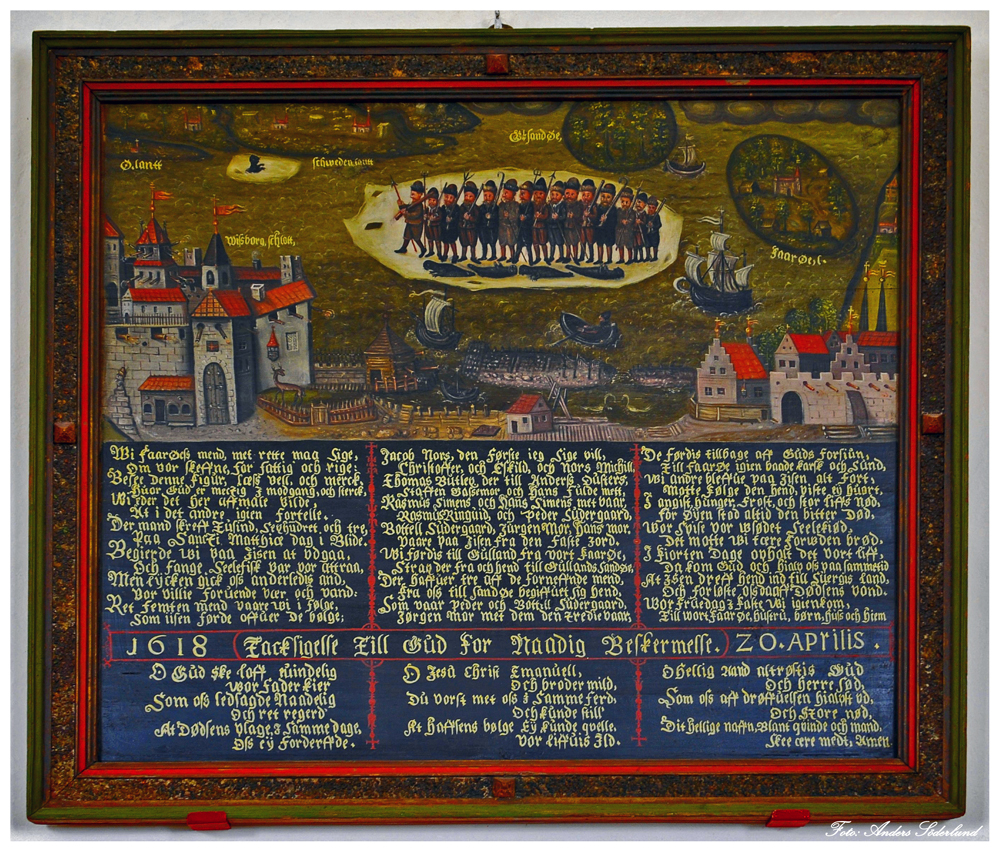 Gåsand Øe,
O.lantt
schweden lantt
Wisborg, schlott,
Faar Øe, l.
Wi Faarøesch mend, met rette maa sige,
Om vor skeffne, for fattig och rige:
Beser denne figur, læss vell, och merck,
Huor Gud er mectig i modgang, och sterck,
Wi der det her affmalit Kilde,
At i det andre igen fortelle.
Der mand skreff Tusind, Sexhudret och tre,
Paa Sancti Matthiæ dag i Blide,
Begierde wi paa Iisen at udgaa,
Och fange Seelefisk var vor attraa,
Men lycken gick oss anderledis and,
Wor villie foruende vær och vand:
Ret femten mend vaare wi i følge,
Som iisen førde offuer de bølge:
Jacob Nors, den Første ieg sige vill,
Christoffer, och Eskild, och Nors Michill
Thomas Butley der till Anderss Austers,
Staffen Galsemor, och Hans fulde mett,
Rasmus Simens, och Hans Simens met vaar,
Rasmus Ringuid, och Peder Sudergaard,
Bottell Sudergaard, Jurgen Mor, Hans mor,
Vaare paa Iisen fra den faste Jord.
Wi førdis till Gulland fra vort Faarøe,
Strax der fra och hend till Gullands Sandøe,
Der haffuer tre aff de forneffnde mend,
Fra oss till sandøe begiffuet sig hend,
Som vaar Peder och Bottill Sudergaard,
Jørgen Mor met dem den Tredie vaar,
De førdis tilbage aff Guds forsiun,
Till Faarøe igien baade karsk och Sund,
Wi andre bleffue paa Iisen alt fort,
Motte følge den hend, viste ey huort,
I angist, hunger, Frost, och stor liffs nød,
For Øyen stod altid den bitter Død,
Wor spise vor wsødet Seelekiød,
Det motte wi tære foruden brød,
I fiorten Dage opholt det vort liff,
Da kom Gud och hialp oss paa sammetid
At Isen dreff hend ind till Suergis land,
Och forløste oss aff Dødsens vond.
Wor Fruedag i Faste wi igienkom,
Till vort Faarøe, hustru, børn, hus och hiem
1618 Tacksigelse Till Gud for Naadig Beskermelse. 20.Aprilis.
O Gud ske loff eundelig
Wor Fader kier
Som oss ledsagde Naadelig
Och ret regerd
At Dødsens plage, i samme dage,
Oss ey forderffde.
O Jesu Christ Emanuell,
Och broder mild,
Du vorst met oss i samme ferd,
Och kunde still
At haffsens bølge Ey kunde quelle,
Vor liffuis Ild.
O hellig Aand altrøstis Gud
Och herre sød,
Som oss aff drøffuelsen hialpst ud,
Och store nød,
Dit hellige naffn, Blant quinde och mand,
Skee ære medt, Amen
Foto: Anders Söderlund